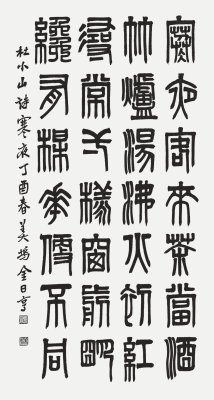 寒夜客來茶當酒
竹爐湯沸火初紅
尋常一樣窗前明
纔有楳花便不同
杜小山詩寒夜丁酉春美楊金日亨